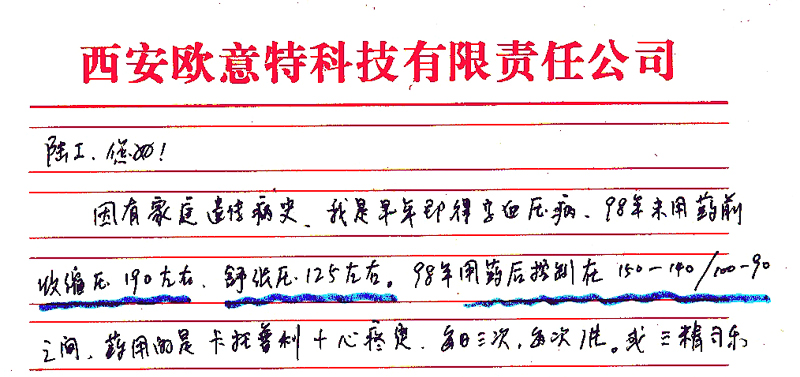 西安欧意特科技有限责任公司
陆工、您好!
因有家庭遗传病史、我是早年即得高血压病、98年未用药前
收缩压190左右、舒张压125左右。98年用药后控制在150-140/100-90
之间、药用的是卡托普利+心痛定、每日三次,每次1片。或三精司乐